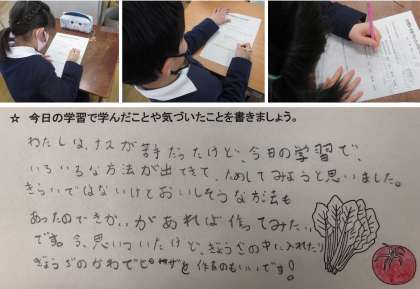 ☆ 今日の学習で学んだことや気づいたことを書きましょう。
わたしは、ナスが苦手だったけど、今日の学習で、
いろいろな方法が出てきて、ためしてみようと思いました。
きらいではないけどおいしそうな方法も
あったのできかいがあれば作ってみたい
です。今、思いついたけど、ぎょうざの中に入れたり
ぎょうざのかわでピザを作るのもいいです!